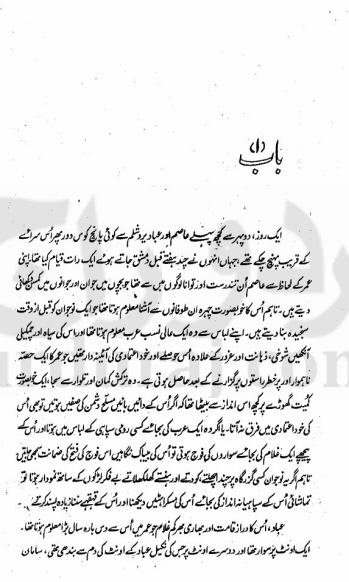 باب (۱)
ایک روز، دوپہر سے کچھ پہلے عاصم اور عباد یروشلم سے کوئی پانچ کوس دور پھر اُس سرائے
کے قریب پہنچ چکے تھے، جہاں انہوں نے چند ہفتے قبل دمشق جاتے ہوئے ایک رات قیام کیا تھا۔ اپنی
عمر کے لحاظ سے عاصم اُن تندرست اور توانا لوگوں میں سے تھا جو بچپن میں جوان اور جوانوں میں سنجیدہ دکھائی
دیتے ہیں۔ تاہم اُس کا خوبصورت چہرہ ان طوفانوں سے آشنا معلوم ہوتا تھا جو ایک نوجوان کو قبل از وقت
سنجیدہ بنا دیتے ہیں۔ اپنے لباس سے وہ ایک عالی نسب عرب معلوم ہوتا تھا اور اس کی سیاہ اور چمکیلی
آنکھیں شوخی، ذہانت اور غرور کے علاوہ اُس حوصلے اور خود اعتمادی کی آئینہ دار تھیں جو عمر کا ایک حصہ
ناہموار اور پُرخطر راستوں پر گزارنے کے بعد حاصل ہوتی ہے۔ وہ ترکش کمان اور تلوار سے سجا، ایک خوبصورت
کمیت گھوڑے پر کچھ اس انداز سے بیٹھا تھا کہ اگر اُس کے دائیں بائیں مسلح دشمن کی صفیں ہوتیں تو بھی اُس
کی خود اعتمادی میں فرق نہ آتا۔ یا اگر وہ ایک عرب کی بجائے کسی رومی سپاہی کے لباس میں ہوتا اور اُس کے
پیچھے ایک غلام کی بجائے سواروں کی فوج ہوتی تو اُس کی بیباک نگاہیں اس فوج کی فتح کی ضمانت سمجھی جاتیں
تاہم اگر یہ نوجوان کسی گزرگاہ پر چند اچھلتے، کودتے اور ہنستے کھلکھلاتے بے فکر لڑکوں کے ساتھ نمودار ہوتا تو
تماشائی اُس کے سپاہیانہ انداز کی بجائے اُس کی مسکراہٹیں دیکھنا اور اُس کے قہقہے سننا زیادہ پسند کرتے۔
عباد، اُس کا دراز قامت اور بھاری بھرکم غلام جو عمر میں اُس سے دس بارہ سال بڑا معلوم ہوتا تھا۔
ایک اونٹ پر سوار تھا اور دوسرے اونٹ پر جس کی نکیل عباد کے اونٹ کی دم سے بندھی تھی، سامان